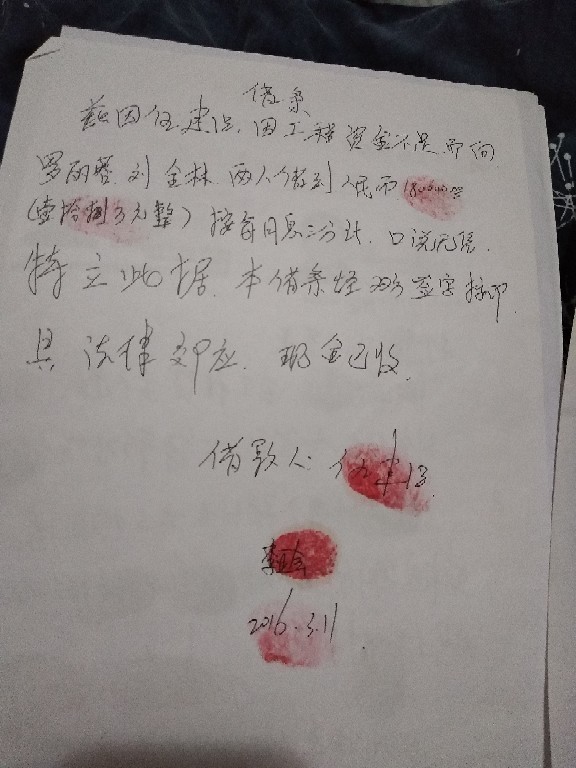 借条
兹因任建设,因工程资金不足,而向
罗丽蓉.刘金林.两人借到人民币180000.00
(壹拾捌万元整)按每月息二分计.口说无凭.
特立此据.本借条经双方签字按印
具法律効应.现金已收.
借款人:任建
2016.3.11